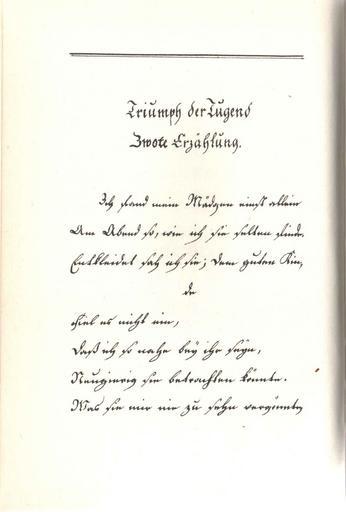 Triumph der Tugend
Zwote Erzählung.
Ich fand mein Mädgen einst allein
Am Abend so, wie ich sie selten finde.
Entkleidet sah ich sie; dem guten Kin,
de
Fiel es nicht ein,
Daß ich so nahe bey ihr seyn,
Neugierig sie betrachten könnte.
Was sie mir nie zu sehn vergönnte,